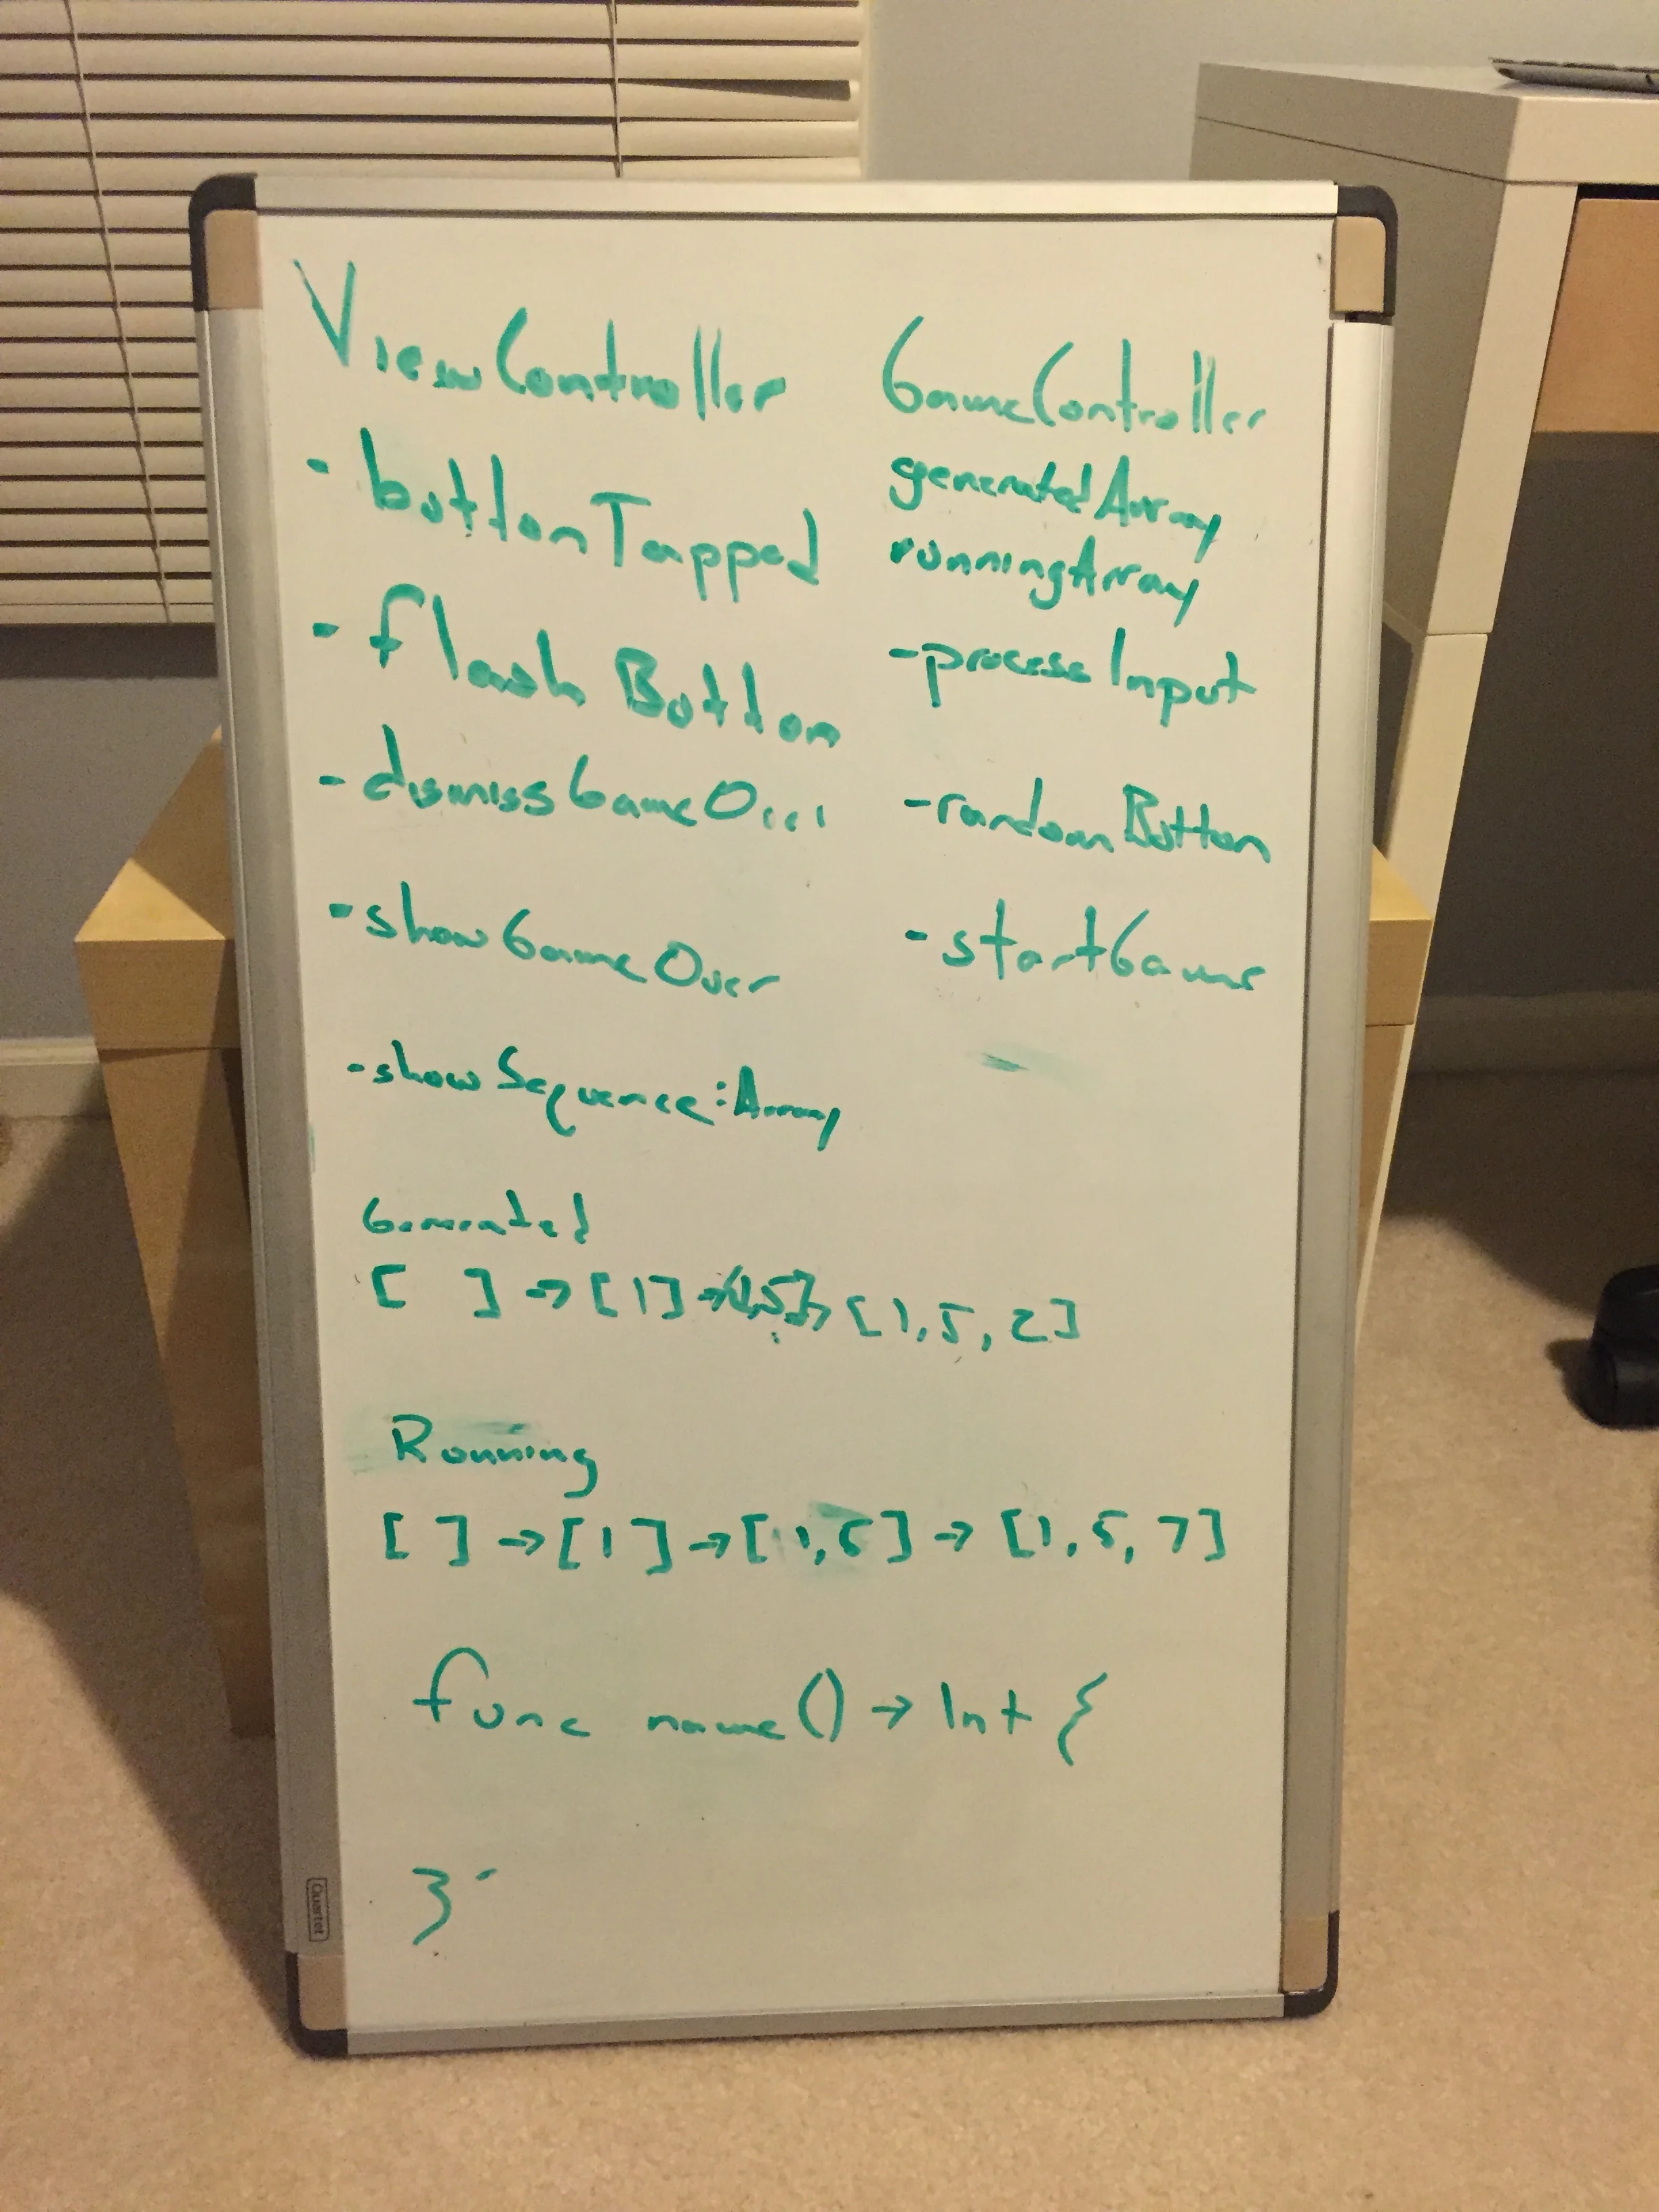 ViewController
- buttonTapped
- flashButton
- dismissGameOver
- showGameOver
- showSequence:Array
GameController
generatedArray
runningArray
- processInput
- randomButton
- startGame
Generated
[ ] → [1] → [1,5] → [1, 5, 2]
Running
[ ] → [1] → [1,5] → [1, 5, 7]
func name() → Int {
}
Quartet